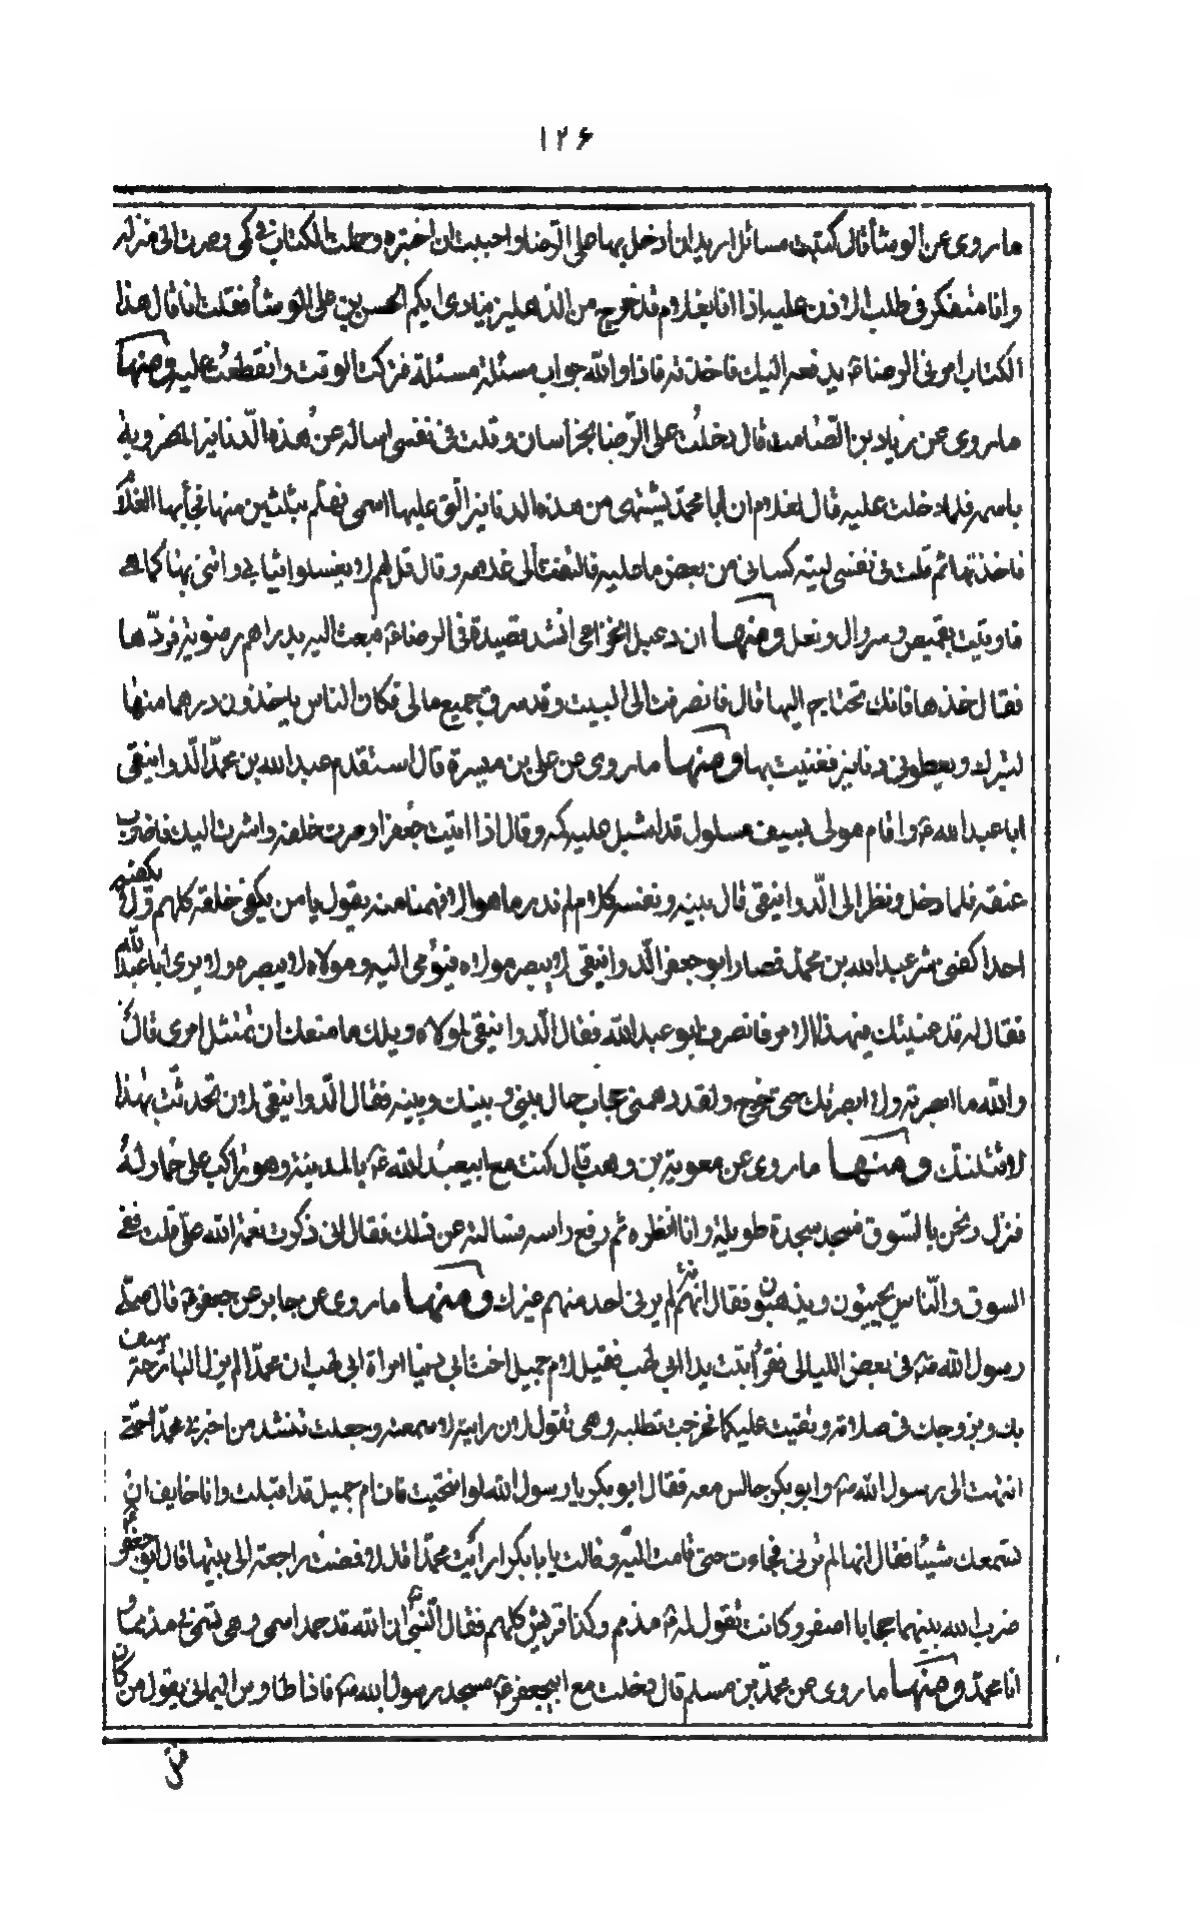 ١٢۶
ما روى عن الوشأ قال كتبت مسائل اريد ان أدخل بها على الرّضا واحببت ان اختبره وحملت الكتاب في كمى وصرت الى منزله
وانا متفكر في طلب الاذن عليه اذا انا بغلام قد خرج من الدهليز ينادى ايكم الحسن بن على الوشأ فقلت انا قال هذا
الكتاب امرنى الرضا ع بدفعه اليك فاخذته فاذا والله جواب مسئلة مسئلة فتركت الوقت وانقطعت عليه ومنها
ما روى عن زياد بن الصّامت قال دخلت على الرّضا بخرأسان وقلت في نفسى اساله عن هذه الدّنانير المضروبة
باسمه فلما دخلت عليه قال لغلامه ان ابا محمّد يشتهى من هذه الدنانير الّتى عليها اسمى فهلم بثلثين منها فجأ بها الغلام
فاخذتها ثم قلت في نفسى ليته كسانى من بعض ما عليه فالتفت ألى غلامه وقال قل لهم لا يغسلوا ثيابى واتنى بها كما هى
فاوتيت بقميص وسروال ونعل ومنها ان دعبل الخزاعى انشد قصيدة في الرضا ع فبعث اليه بدراهم رضوية فردّها
فقال خذها فانك تحتاج اليها قال فانصرفت الى البيت وقد سرق جميع مالى فكان الناس ياخذون درهما منها
لتبرك ويعطونى دنانير فغنيت بها ومنها ما روى عن على بن ميسرة قال استقدم عبد الله بن محمّد الدّوانيقى
ابا عبد الله ع واقام مولى بسيف مسلول قد اسبل عليه كمه وقال اذا اتيت جعفر اومرت خلفه واشرت اليك فاضرب
عنقه فلما دخل ونظر الى الدّوانيقى قال بينه ونفسه كلام لم ندر ما هو الا فهمنا منه يقول يا من يكفى خلقه كلهم ولا يكفيه
احد اكفنى شر عبد الله بن محمّد فصار ابو جعفر الدّوانيقى لا يبصر مولاه فيؤمى اليه ومولاه لا يبصره ولا يرى ابا عبد الله
فقال له قد عنيتك فيهذا الامر فانصرف ابو عبد الله فقال الدّوانيقى لمولاه ويلك ما منعك ان تمتثل امرى قال
والله ما ابصرته ولا ابصرتك حتى خرج ولقد دهمنى حجاب حال بينى وبينك وبينه فقال الدّوانيقى لان تحدثت بهذا
لاقتلنك ومنها ما روى عن معوية بن وهب قال كنت مع ابيعبد الله ع بالمدينة وهو راكب على حمار له
فنزل ونحن بالسّوق فسجد سجدة طويلة وانا انظره ثم رفع راسه فسالته عن ذلك فقال انى ذكرت نعمة الله علىّ قلت ففى
السوق والنّاس يجيئون ويذهبون فقال انهم لم يرنى احد منهم غيرك ومنها ما روى عن جابر عن جعفر ع قال صلّى
رسول الله ص في بعض الليالى فقرأ تبّت يدا ابي لهب فقيل لام جميل اخت ابي سفيا امراة ابي لهب ان محمّدا لم يزل البارحة يهتف
بك وبزوجك في صلاته ويقنت عليكما فخرجت تطلبه وهى تقول لان رايته لاسمعنه وجعلت تنشد من اخبرنى محمّدا حتى
انتهت الى رسول الله ص وابو بكر جالس معه فقال ابو بكر يا رسول الله لو انتحيت فان ام جميل قد اقبلت وانا خايف ان
تسمعك شيئا فقال انها لم ترنى فجاءت حتى قامت اليّه وقالت يا با بكر ارأيت محمّدا قال لا فمضت راجعة الى بيتها قال ابو جعفر ع
ضرب الله بينهما حجابا اصفر وكانت تقول له ص مذمم وكذا قريش كلهم فقال النّبي ان الله قد حمد اسمى وهى تسمى مذمما
انا محمّد ومنها ما روى عن محمّد بن مسلم قال دخلت مع ابيجعفر ع مسجد رسول الله ص فاذا طاوس اليمانى يقول من كان